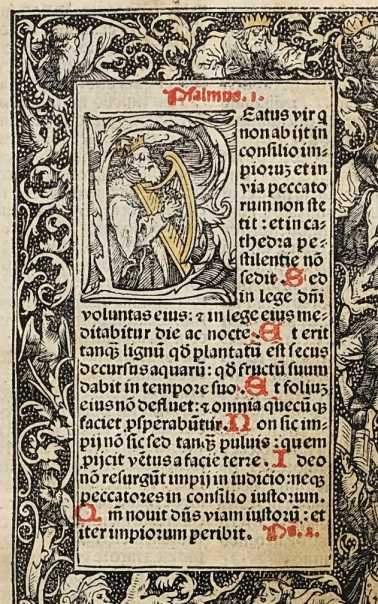 Psalmus. 1.
Eatus vir q
non abijt in
consilio im-
pioruʒ et in
via peccato
rum non ste
tit : et in ca-
thedra pe-
stilentie nō
sedit. Sed
in lege dn̄i
voluntas eius: ⁊ in lege eius me-
ditabitur die ac nocte. Et erit
tanqʒ lignū qd̄ plantatū est secus
decursus aquarū: qd̄ fructū suum
dabit in tempore suo. Et foliuʒ
eius nō defluet: ⁊ omnia quecūqʒ
faciet ꝓsperabūtur. Non sic im-
pij nō sic sed tanqʒ puluis : quem
ꝓijcit vētus a facie terre. Ideo
nō resurgūt impij in iudicio: neqʒ
peccatores in consilio iustorum.
Qm̄ nouit dn̄s viam iustorū : et
iter impiorum peribit. Ps. 2.